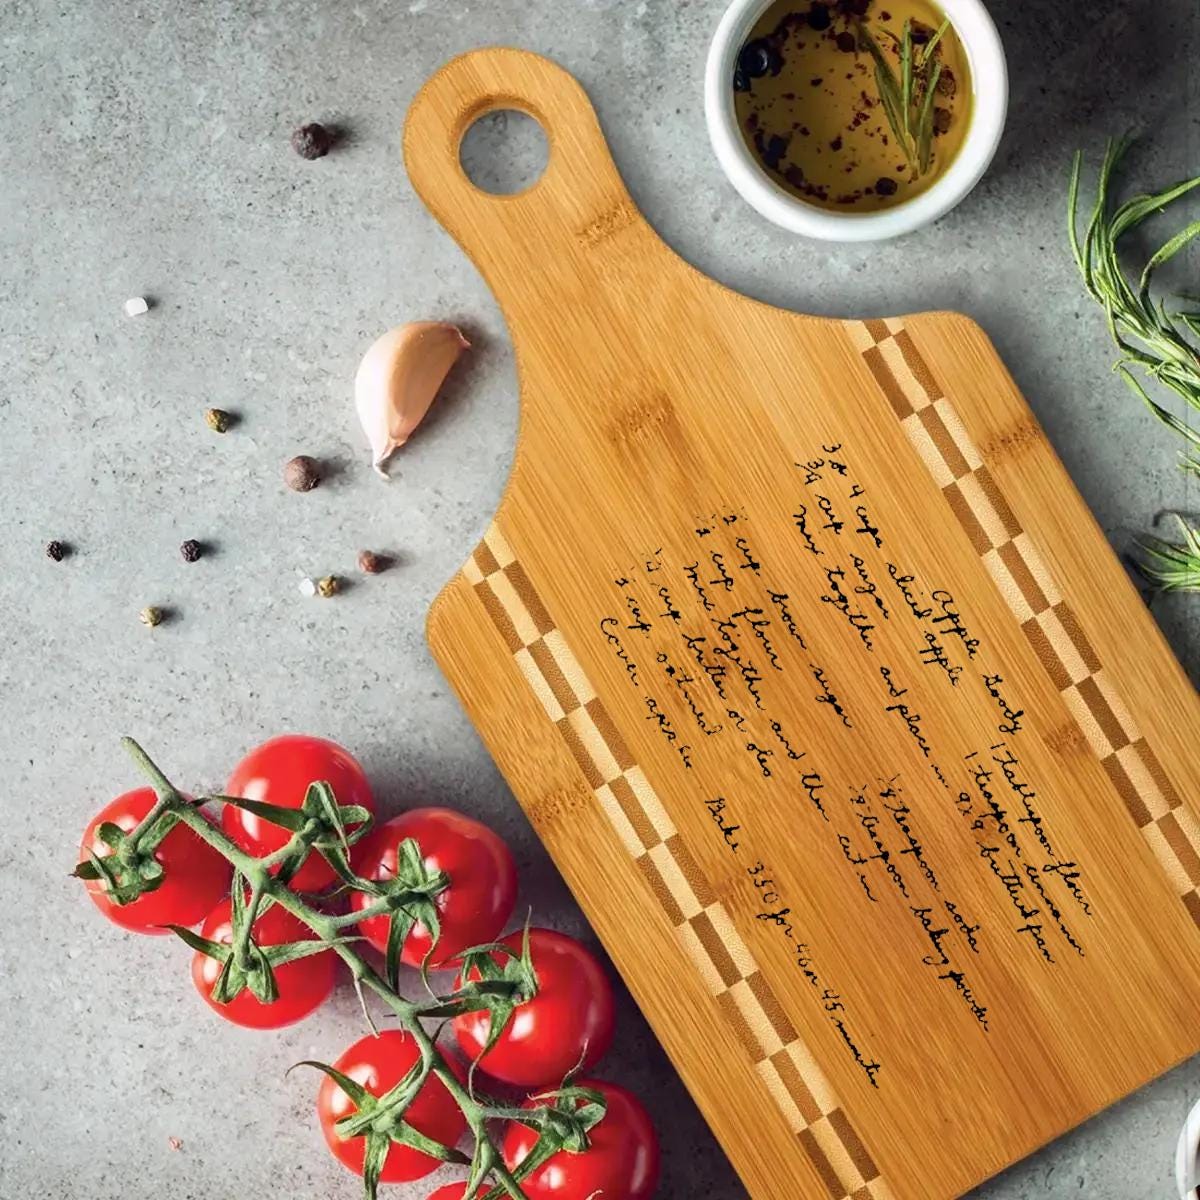 Apple Goody
3 or 4 cups sliced apple 1 tablespoon flour
3/4 cup sugar 1 teaspoon cinnamon
Mix together and place in 9x9 buttered pan
1/2 cup brown sugar 1/4 teaspoon soda
1 cup flour 1/4 teaspoon baking powder
Mix together and then cut in
1/2 cup butter or oleo
cup oatmeal
Cover apples Bake 350 for 40 or 45 minutes